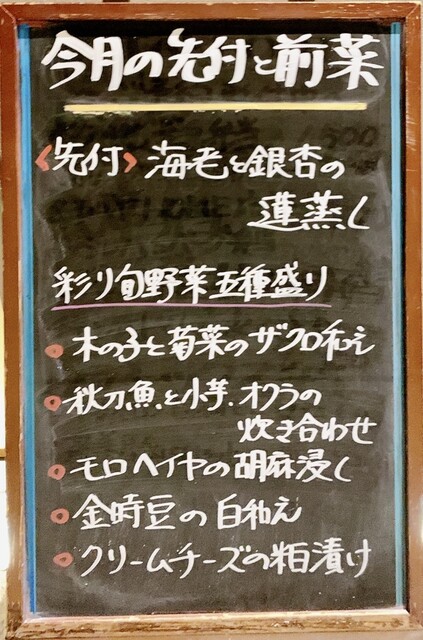 今月の先付と前菜
〈先付〉海老と銀杏の
蓮蒸し
彩り旬野菜五種盛り
木の子と菊菜のザクロ和え
秋刀魚と小芋.オクラの
炊き合わせ
モロヘイヤの胡麻浸し
金時豆の白和え
クリームチーズの粕漬け